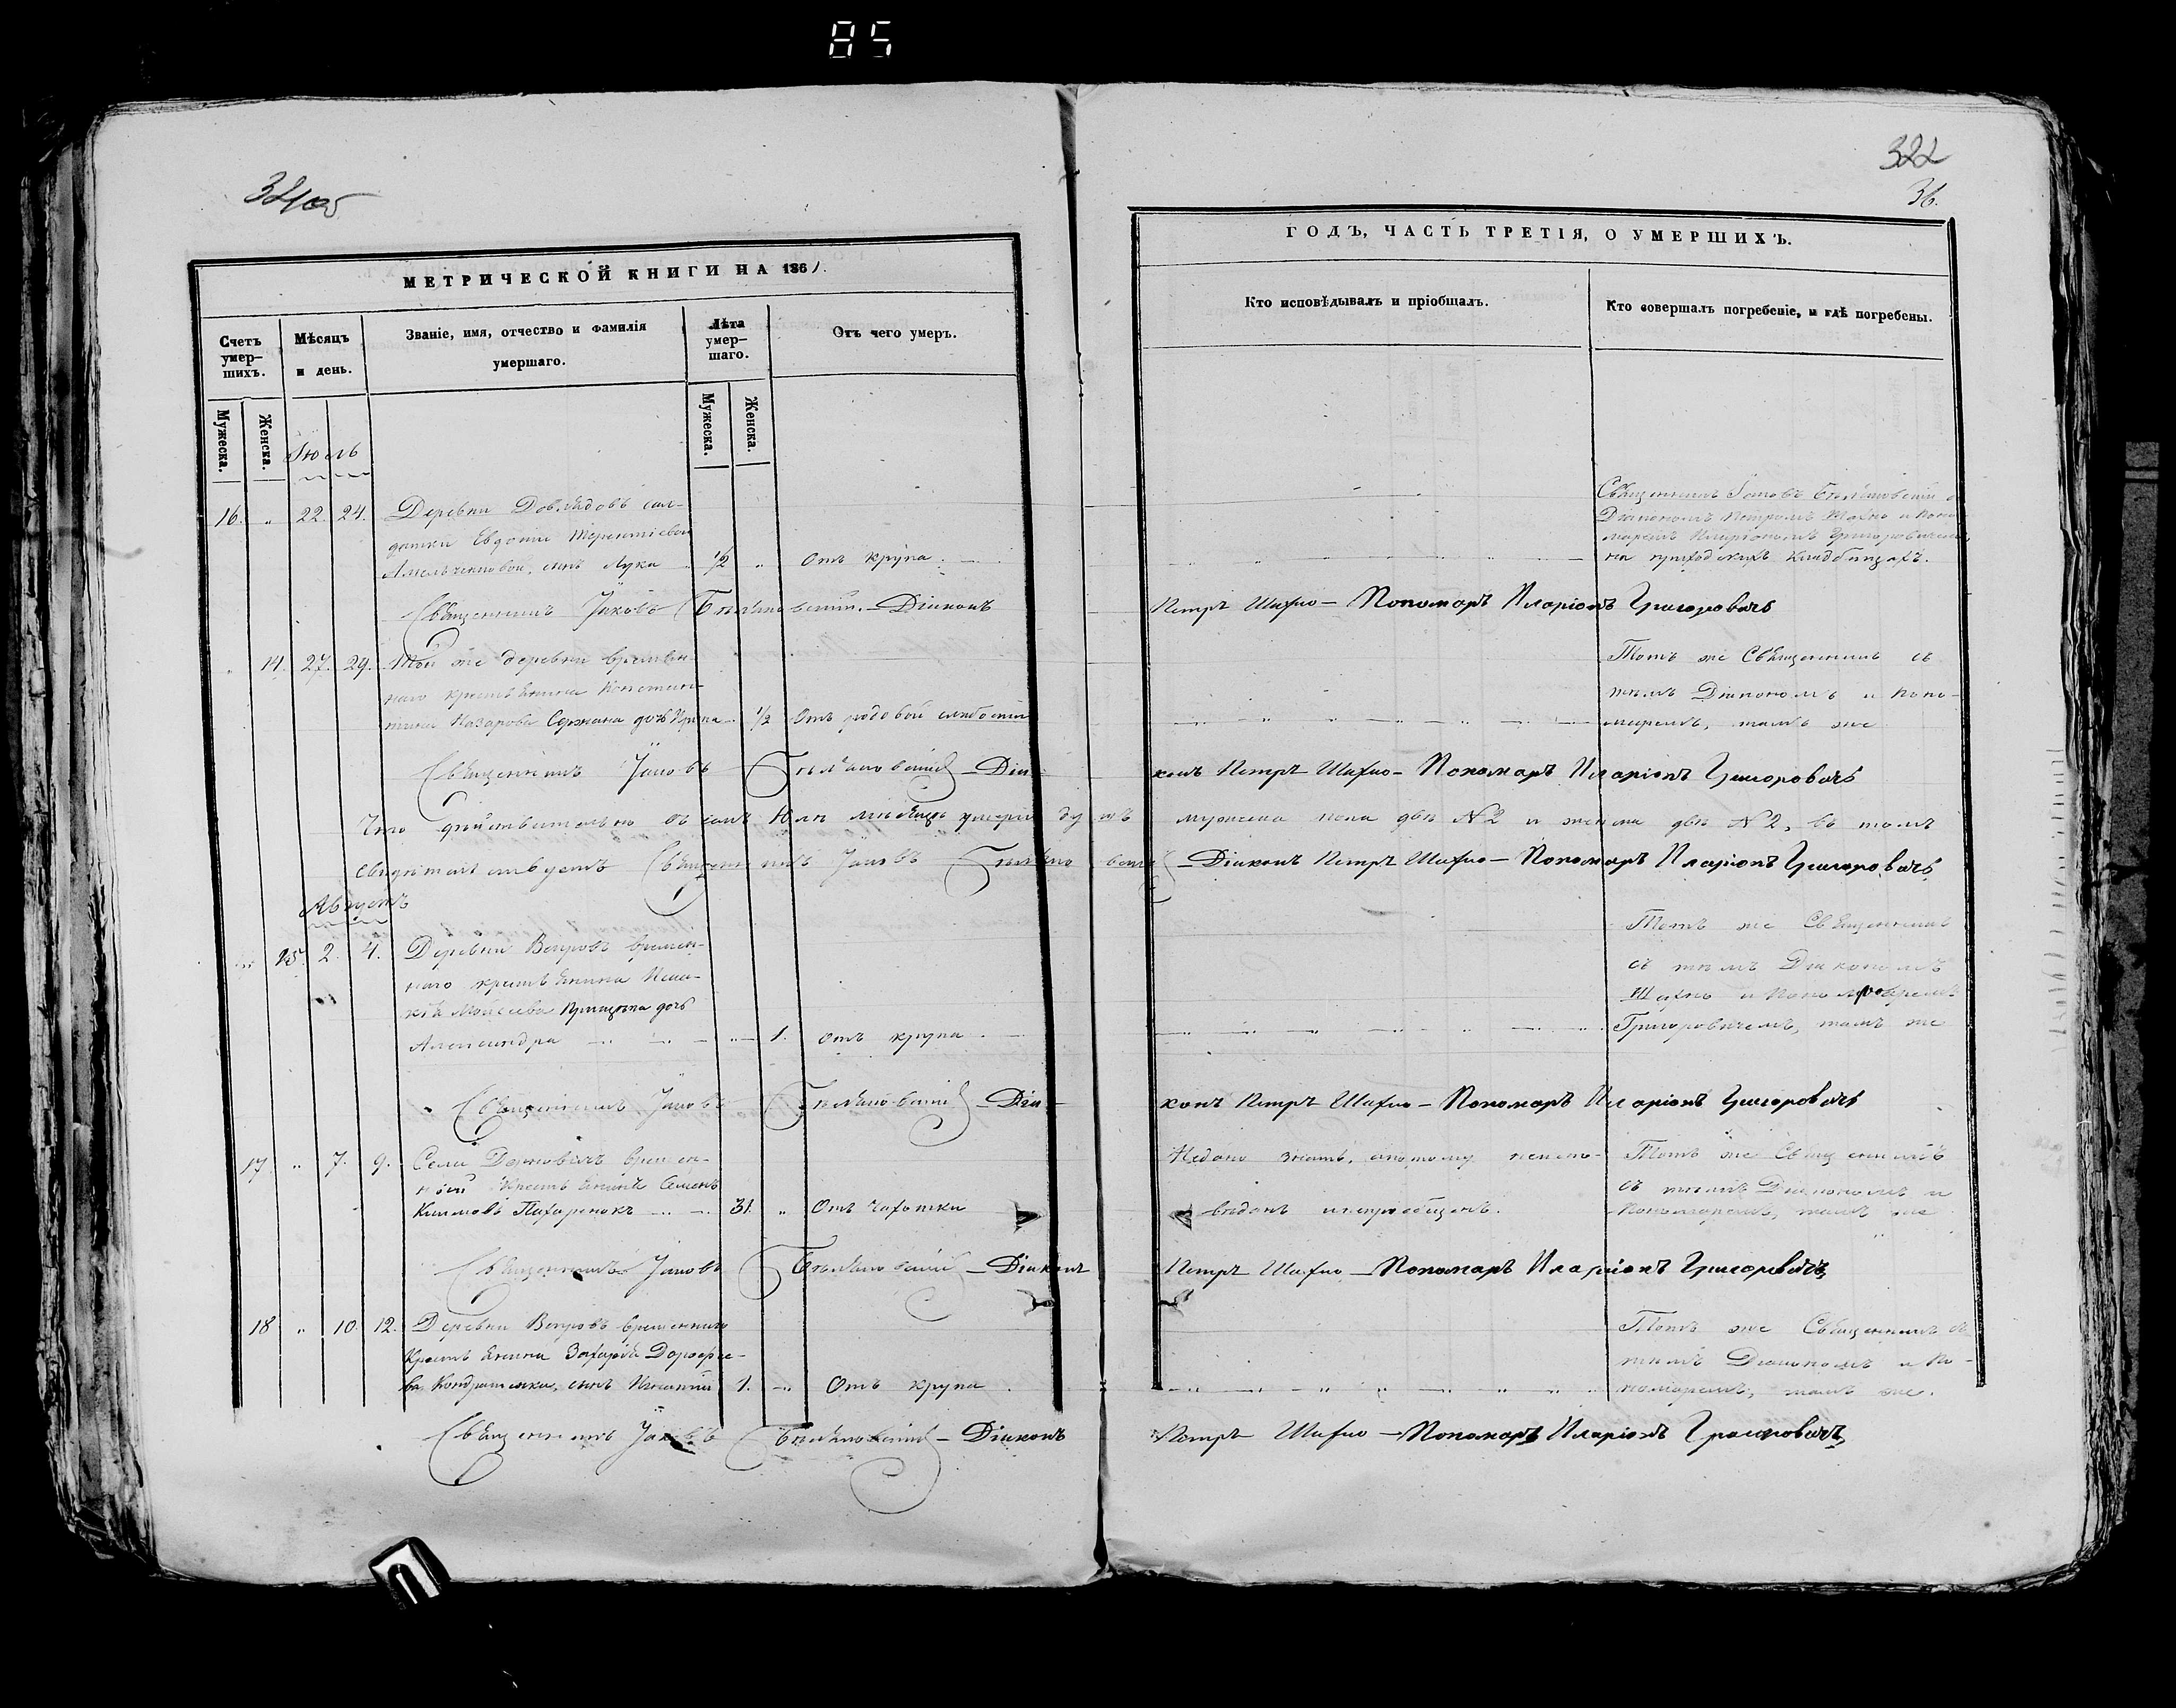 85
322
36.
МЕТРИЧЕСКОЙ КНИГИ НА 1861.
ГОДЪ, ЧАСТЬ ТРЕТІЯ, О УМЕРШИХЪ.
Счетъ умер-
шихъ.
Мѣсяцъ
и день.
Званіе, имя, отчество и фамилія
умершаго.
Лѣта
умер-
шаго.
Отъ чего умеръ.
Кто исповѣдывалъ и пріобщалъ.
Кто совершалъ погребеніе, и гдѣ погребены.
Мужеска.
Женска.
Мужеска.
Женска.
Іюль
16. " 22. 24. Деревни Довлядовъ сол-
датки Евдокіи Терентіевой
сынъ Лука ½ " Отъ крупа.
Священникъ Іаковъ
Діакономъ Петромъ Шахно и Поно-
маремъ Иларіономъ Григоровичемъ
на приходскихъ кладбищахъ.
Священникъ Іаковъ Діаконъ Петръ Шахно – Пономарь Иларіонъ Григоровичъ
" 14. 27. 29. Той же деревни времен-
наго крестьянина Констан-
тина Назарова дочь ½ Отъ родовой слабости
Тотъ же Священникъ съ
тѣмъ Діакономъ и Поно-
маремъ, тамъ же
Священникъ Іаковъ Діаконъ Петръ Шахно – Пономарь Иларіонъ Григоровичъ
Что дѣйствительно въ семъ Юлѣ мѣсяцѣ умерш душъ мужеска пола двѣ №2 и женска двѣ №2, въ томъ
свидѣтельствуемъ Священникъ Іаковъ Діаконъ Петръ Шахно – Пономарь Иларіонъ Григоровичъ
Августъ
" 15. 2. 4. Деревни Вепровъ времен-
наго крестьянина
Мойсеева дочь
Александра 1. Отъ крупа
Тотъ же Священникъ
съ тѣмъ Діакономъ
Шахно и Пономаремъ
Григоровичемъ, тамъ же
Священникъ Іаковъ Діаконъ Петръ Шахно – Пономарь Иларіонъ Григоровичъ
17. " 7. 9. Села Дерновичъ времен-
ной Крестьянинъ Семенъ
Климовъ 31. " Отъ чахотки
Недано знать, а потому неиспо-
вѣданъ и непріобщенъ.
Тотъ же Священникъ
съ тѣмъ Діакономъ и
Пономаремъ, тамъ же
Священникъ Іаковъ Діаконъ Петръ Шахно – Пономарь Иларіонъ Григоровичъ
18 " 10. 12. Деревни Вепровъ временнаго
Крестьянина Дорофѣе-
ва Кондратенка, сынъ 1. " Отъ крупа
Тотъ же Священникъ съ
тѣмъ Діакономъ и По-
номаремъ, тамъ же.
Священникъ Іаковъ Діаконъ Петръ Шахно – Пономарь Иларіонъ Григоровичъ